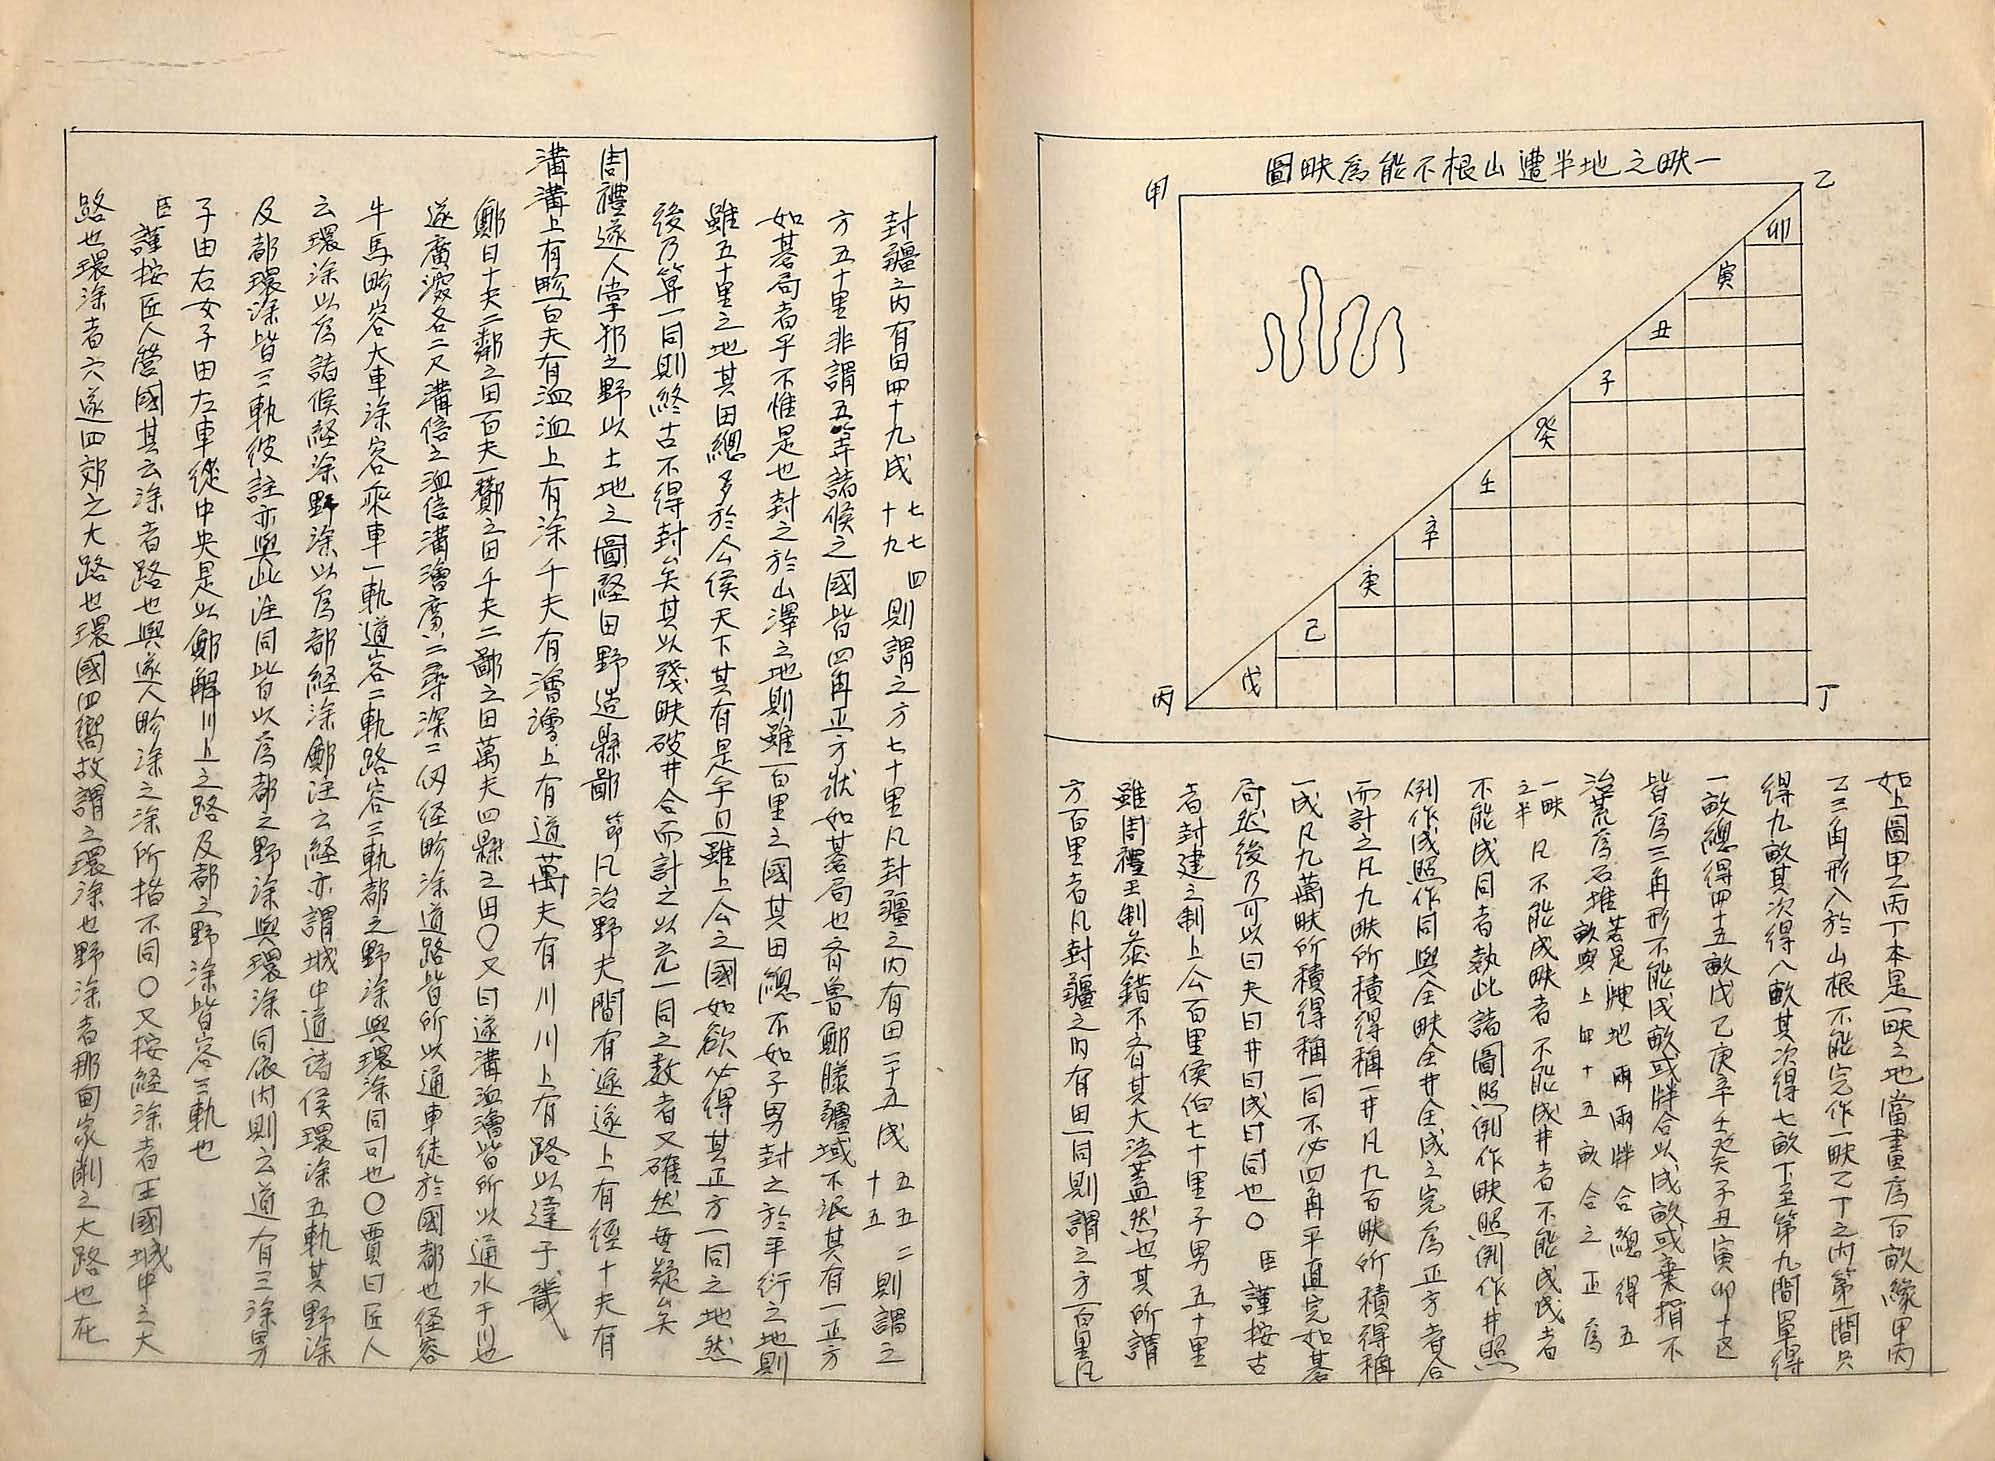 一畉之地半遭山根不能爲畉圖
甲
乙
丙
丁
卯
寅
丑
子
癸
壬
辛
庚
己
戊
如上圖甲乙丙丁本是一畉之地當畫爲一百畝緣甲丙
乙三角形入於山根不能完作一畉乙丁之內第一間只
得九畝其次得八畝其次得七畝丁至第九間單得
一畝總得四十五畝戊己庚辛壬癸子丑寅卯十區
皆爲三角形不能成畝或牉合以成畝或棄捐不
治荒爲石堆若是腴地兩兩牉合總得五畝與上四十五畝合之正爲
一畉之半凡不能成畉者不能成井者不能成成者
不能成同者執此諸圖照例作畉照例作井照
例作成照作同與全畉全井全成之完爲正方者合
而計之凡九畉所積得稱一井凡九百畉所積得稱
一成凡九萬畉所積得稱一同不必四角平直完如碁
局然後乃可以曰夫曰井曰成曰同也〇臣謹按古
者封建之制上公百里侯伯七十里子男五十里
雖周禮王制參錯不之百其大法蓋然也其所謂
方百里者凡封疆之內有田一同則謂之方一百里凡
封疆之內有田四十九成七七四十九則謂之方七十里凡封疆之內有田二十五成五五二十五則謂之
方五十里非謂五等諸候之國皆四角正方狀如碁局也齊魯鄭滕疆域不泯其有一正方
如碁局者乎不惟是也封之於山澤之地則雖一百里之國其田總不如子男封之於平衍之地則
雖五十里之地其田總多於公侯天下其有是乎且雖上公之國如欲必得其正方一同之地然
後乃算一同則終古不得封矣其以殘畉破井合而計之以充一同之數者又確然無疑矣
周禮遂人掌邦之野以土地之圖経田野造縣鄙節凡治野夫間有遂遂上有徑十夫有
溝溝上有畛百夫有洫洫上有涂千夫有澮澮上有道萬夫有川川上有路以達于畿
鄭曰十夫二鄰之田百夫一酇之田千夫二鄙之田萬夫四縣之田〇又曰遂溝洫澮皆所以通水于川也
遂廣深各二尺溝倍之洫倍溝澮廣二尋深二仞径畛涂道路皆所以通車徒於國都也径容
牛馬畛容大車涂容乘車一軌道容二軌路容三軌都之野涂與環涂同可也〇賈曰匠人
云環涂以爲諸候経涂野涂以爲都経涂鄭注云経亦謂城中道諸侯環涂五軌其野涂
及都環涂皆三軌彼註亦與此注同皆以爲都之野涂與環涂同依內則云道有三涂男
子由右女子由左車從中央是以鄭解川上之路及都之野涂皆容三軌也
臣謹按匠人營國其云涂者路也與遂人畛涂之涂所指不同〇又按経涂者王國城中之大
路也環涂者六遂四郊之大路也環國四嚮故謂之環涂也野涂者那甸家削之大路也在